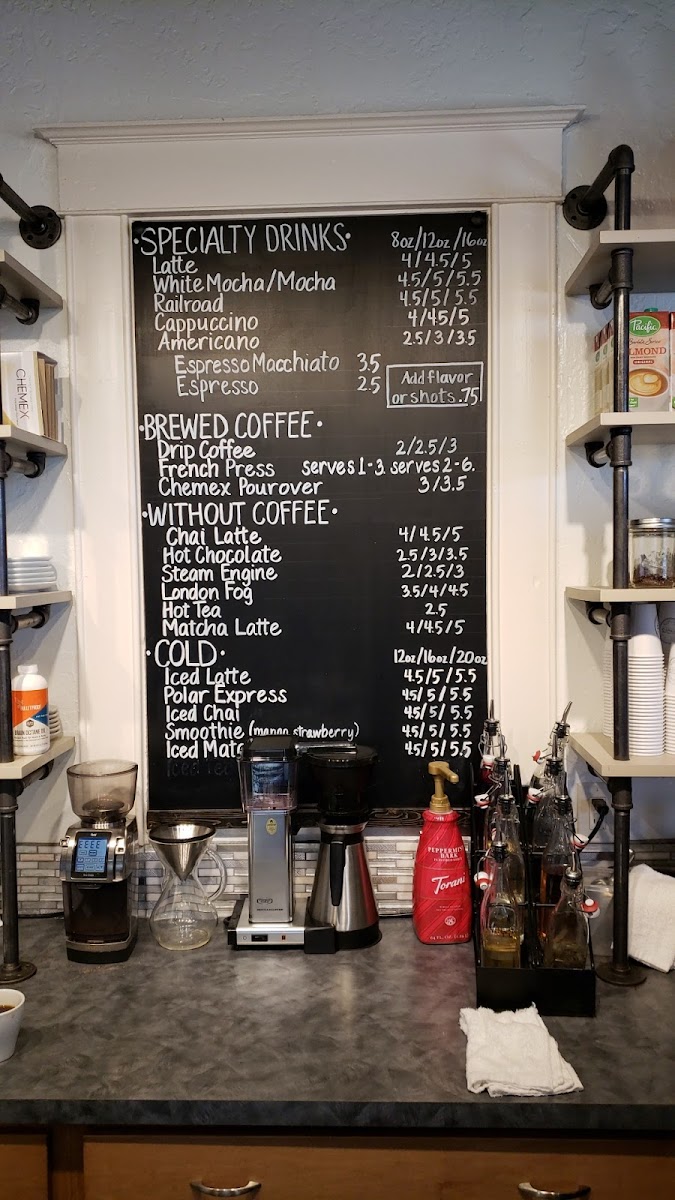 ·SPECIALTY DRINKS· 8oz/12oz/16oz
Latte 4/4.5/5
White Mocha/Mocha 4.5/5/5.5
Railroad 4.5/5/5.5
Cappuccino 4/4.5/5
Americano 2.5/3/3.5
Espresso Macchiato 3.5
Espresso 2.5
Add flavor
or shots .75
·BREWED COFFEE·
Drip Coffee 2/2.5/3
French Press serves 1-3. serves 2-6.
Chemex Pourover 3/3.5
·WITHOUT COFFEE·
Chai Latte 4/4.5/5
Hot Chocolate 2.5/3/3.5
Steam Engine 2/2.5/3
London Fog 3.5/4/4.5
Hot Tea 2.5
Matcha Latte 4/4.5/5
·COLD· 12oz/16oz/20oz
Iced Latte 4.5/5/5.5
Polar Express 4.5/5/5.5
Iced Chai 4.5/5/5.5
Smoothie (mango, strawberry) 4.5/5/5.5
Iced Mat 4.5/5/5.5
Iced Tea
CHEMEX
Pacific
ALMOND
PEPPERMINT
BARK
Torani